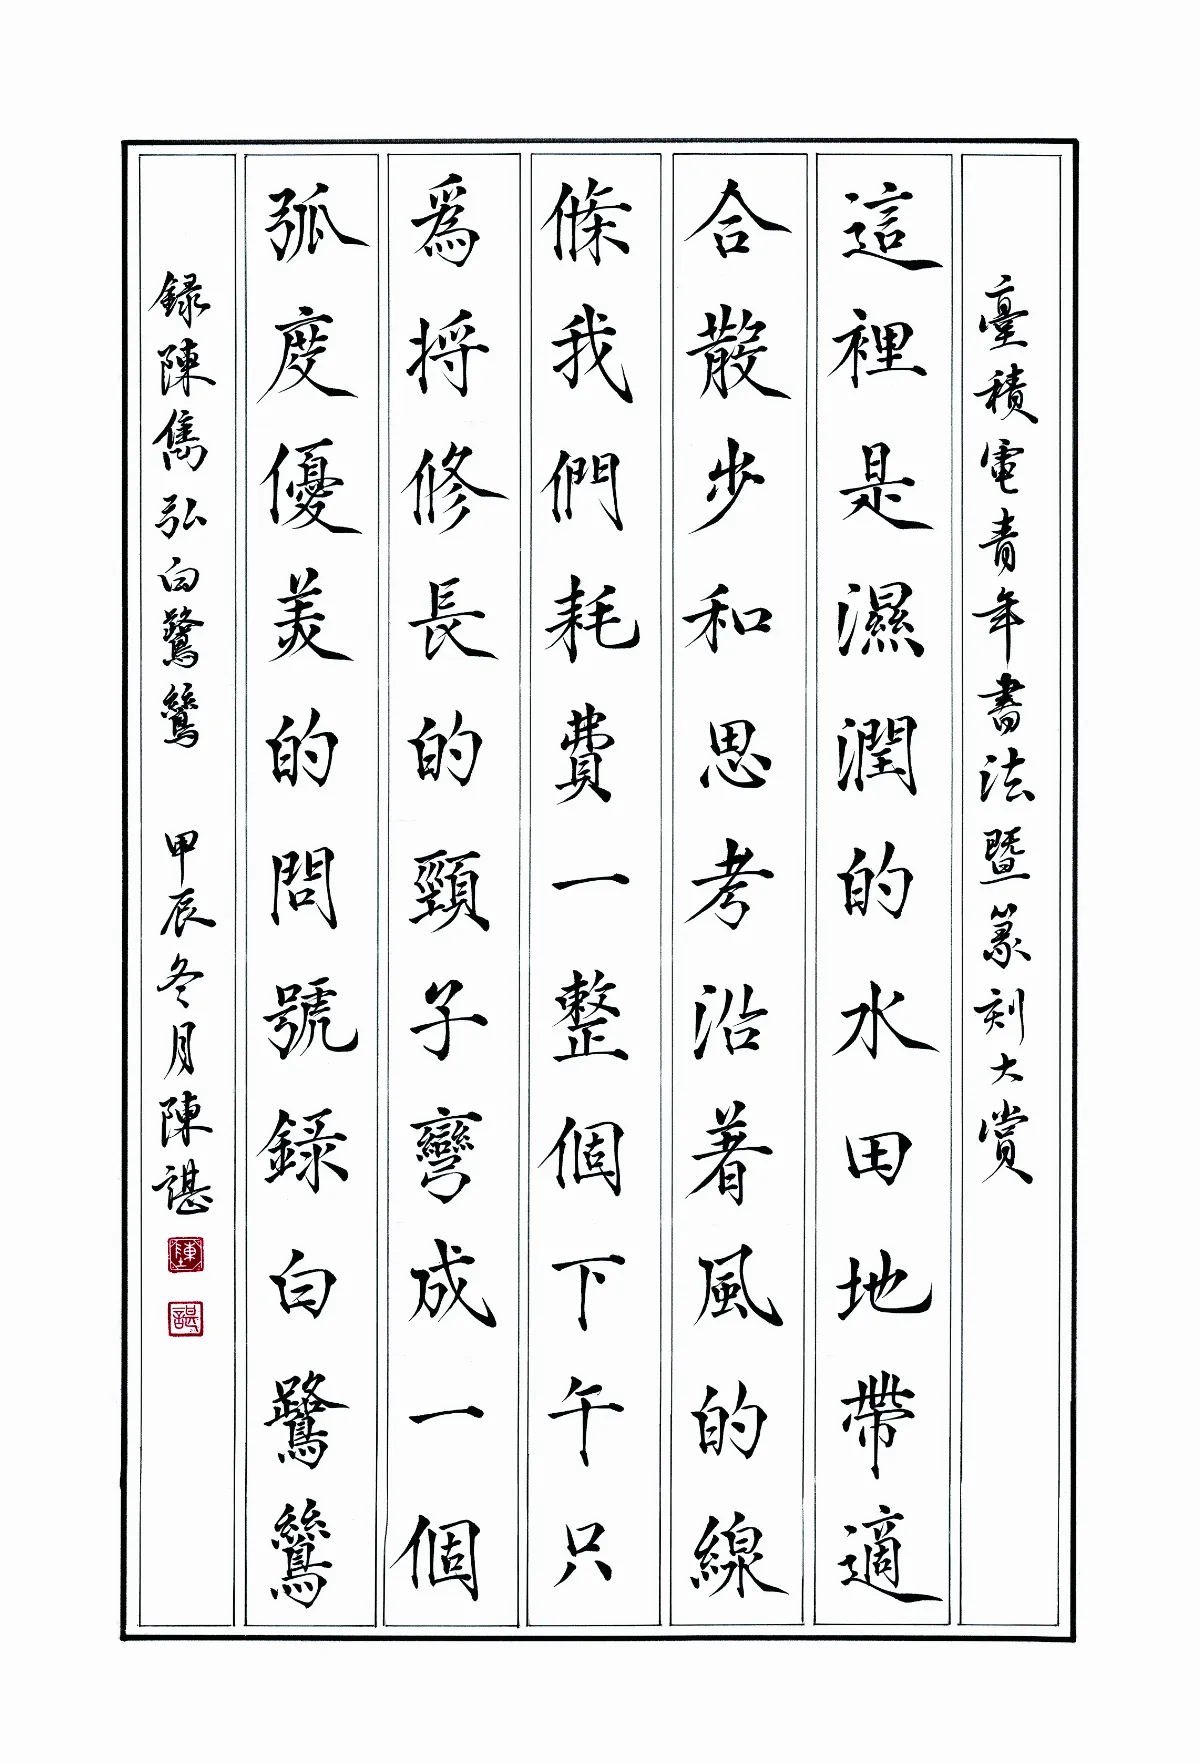 臺積電青年書法暨篆刻大賞
這裡是濕潤的水田地帶適
合散步和思考沿著風的線
條我們耗費一整個下午只
爲將修長的頸子彎成一個
弧度優美的問號錄白鷺鷥
錄陳雋弘白鷺鷥 甲辰冬月陳諶
陳
諶